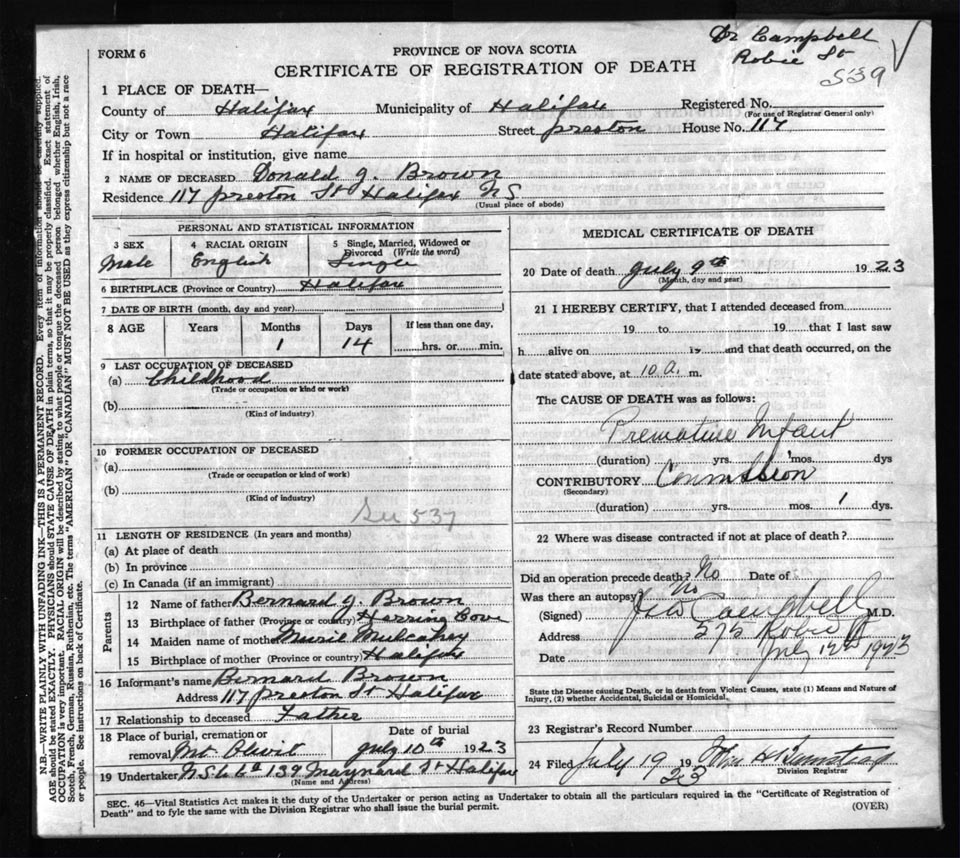 Dr Campbell
Robie St
539
FORM 6
PROVINCE OF NOVA SCOTIA
CERTIFICATE OF REGISTRATION OF DEATH
1 PLACE OF DEATH—
County of Halifax Municipality of Halifax Registered No.
(For use of Registrar General only)
City or Town Halifax Street preston House No. 117
If in hospital or institution, give name
2 NAME OF DECEASED Donald J. Brown
Residence 117 preston St Halifax N S
(Usual place of abode)
PERSONAL AND STATISTICAL INFORMATION
3 SEX Male
4 RACIAL ORIGIN English
5 Single, Married, Widowed or Divorced (Write the word) Single
6 BIRTHPLACE (Province or Country) Halifax
7 DATE OF BIRTH (month, day and year)
8 AGE Years Months 1 Days 14 If less than one day, hrs. or min.
9 LAST OCCUPATION OF DECEASED
(a) Childhood
(Trade or occupation or kind or work)
(b)
(Kind of industry)
10 FORMER OCCUPATION OF DECEASED
(a)
(Trade or occupation or kind or work)
(b)
(Kind of industry)
537
11 LENGTH OF RESIDENCE (In years and months)
(a) At place of death
(b) In province
(c) In Canada (if an immigrant)
Parents
12 Name of father Bernard J. Brown
13 Birthplace of father (Province or country) Herring Cove
14 Maiden name of mother Marie Mulcahey
15 Birthplace of mother (Province or country) Halifax
16 Informant's name Bernard Brown
Address 117 Preston St Halifax
17 Relationship to deceased Father
18 Place of burial, cremation or removal Mt. Olivit
Date of burial July 10th 1923
19 Undertaker 139 Maynard St Halifax
(Name and Address)
MEDICAL CERTIFICATE OF DEATH
20 Date of death July 9th 1923
(Month, day and year)
21 I HEREBY CERTIFY, that I attended deceased from
19 to 19 that I last saw
h alive on 19 and that death occurred, on the
date stated above, at 10 a. m.
The CAUSE OF DEATH was as follows:
Premature Infant
(duration) yrs. mos. dys
CONTRIBUTORY
(Secondary)
(duration) yrs. mos. 1 dys.
22 Where was disease contracted if not at place of death?
Did an operation precede death? No Date of
Was there an autopsy? No
(Signed) Campbell M.D.
Address 575 Robie St
Date July 12th 1923
State the Disease causing Death, or in death from Violent Causes, state (1) Means and Nature of
Injury, (2) whether Accidental, Suicidal or Homicidal.
23 Registrar's Record Number
24 Filed July 19 1923 John H
Division Registrar
SEC. 46—Vital Statistics Act makes it the duty of the Undertaker or person acting as Undertaker to obtain all the particulars required in the "Certificate of Registration of
Death" and to fyle the same with the Division Registrar who shall issue the burial permit.
(OVER)
N.B.—WRITE PLAINLY WITH UNFADING INK—THIS IS A PERMANENT RECORD. Every item of information should be carefully supplied.
AGE should be stated EXACTLY. PHYSICIANS should STATE CAUSE OF DEATH in plain terms, so that it may be properly classified. Exact statement of
OCCUPATION is very important. RACIAL ORIGIN will be described by stating to what people or tongue the deceased person belonged whether English, Irish,
Scotch, French, German, Russian, Ruthenian, etc. The terms "AMERICAN" OR "CANADIAN" MUST NOT BE USED as they express citizenship but not a race
or people. See instructions on back of Certificate.